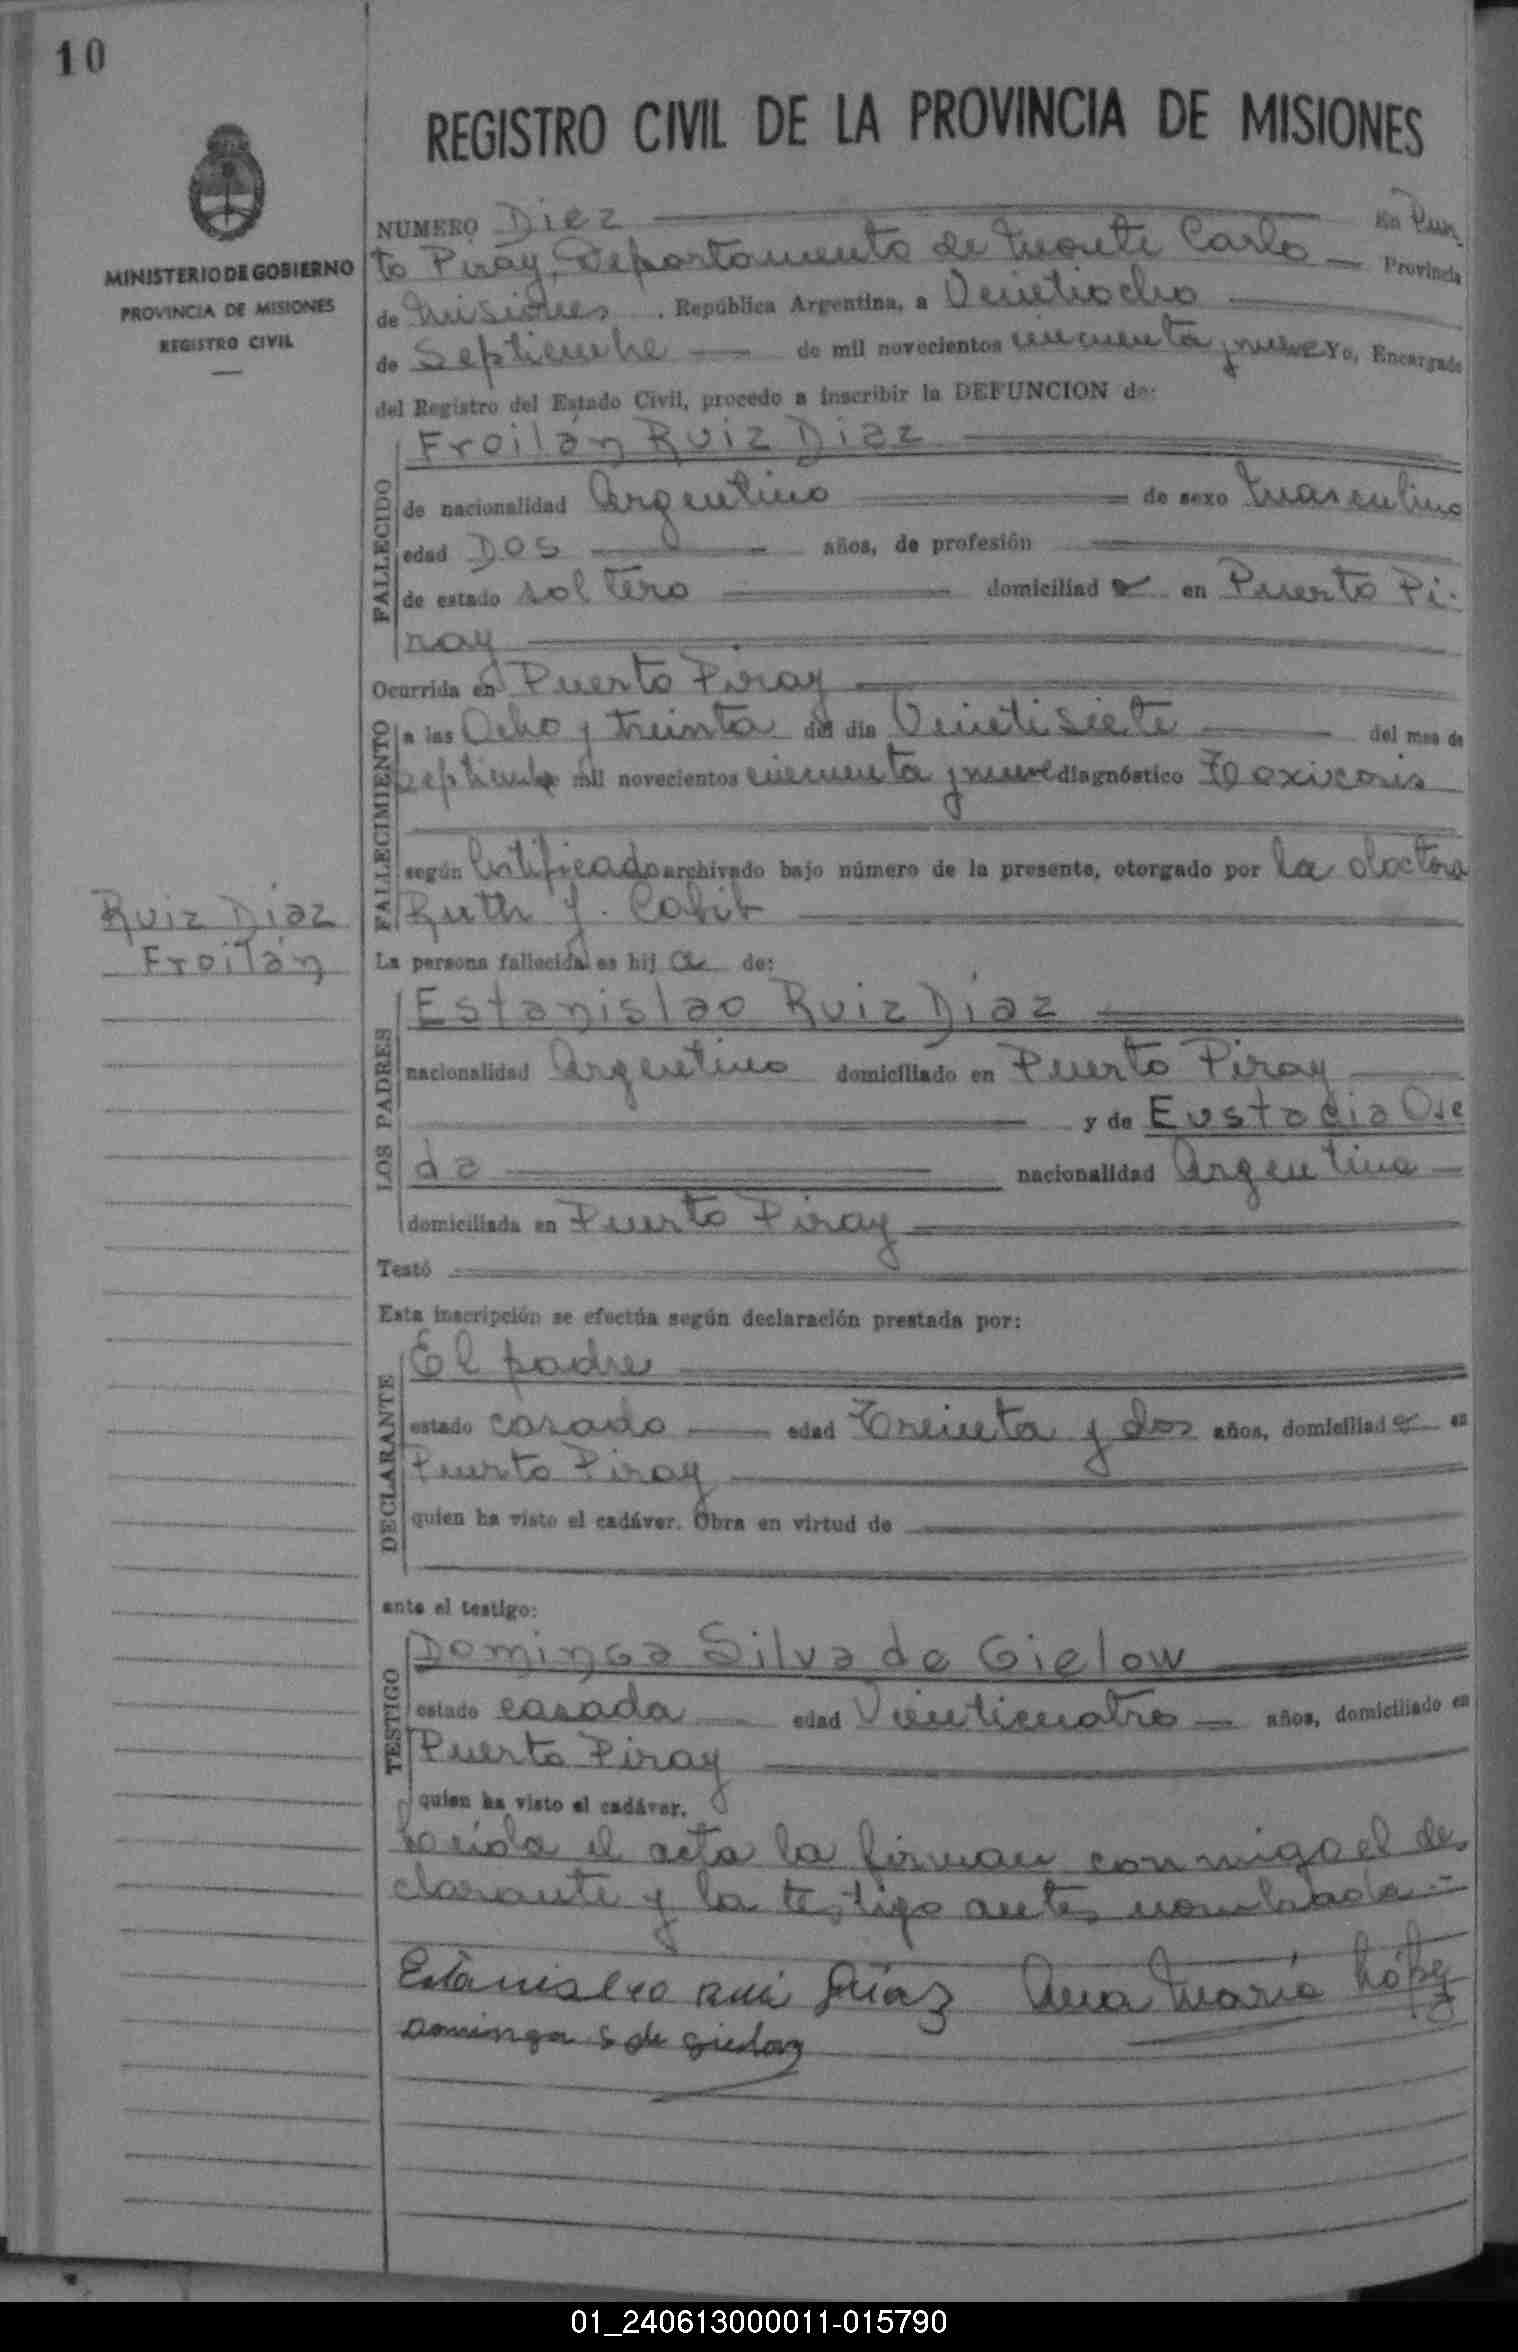 10
REGISTRO CIVIL DE LA PROVINCIA DE MISIONES
MINISTERIO DE GOBIERNO
PROVINCIA DE MISIONES
REGISTRO CIVIL
NUMERO Diez En Puer
to Piray, Departamento de Monte Carlo Provincia
de Misiones . República Argentina, a Veintiocho
de Septiembre de mil novecientos cincuenta y nueve Yo, Encargado
del Registro del Estado Civil, procedo a inscribir la DEFUNCION de:
FALLECIDO
Froilán Ruiz Díaz
de nacionalidad Argentino de sexo Masculino
edad Dos años, de profesión
de estado soltero domiciliad o en Puerto Pi-
ray
Ocurrida en Puerto Piray
FALLECIMIENTO
a las Ocho y treinta del dia Veintisiete del mes de
septiembre mil novecientos cincuenta y nueve diagnóstico Toxicosis
según Certificado archivado bajo número de la presente, otorgado por la doctora
Ruth J.
Ruiz Díaz
Froilán
La persona fallecida es hij o de:
LOS PADRES
Estanislao Ruiz Díaz
nacionalidad Argentino domiciliado en Puerto Piray
y de Eustacia Ose
da nacionalidad Argentina
domiciliada en Puerto Piray
Testó
Esta inscripción se efectúa según declaración prestada por:
DECLARANTE
El padre
estado casado edad Treinta y dos años, domiciliad o en
Puerto Piray
quien ha visto el cadáver. Obra en virtud de
ante el testigo:
TESTIGO
Dominga Silva de Gielow
estado casada edad Veinticuatro años, domiciliado en
Puerto Piray
quien ha visto el cadáver.
Leída el acta la firman conmigo el de
clarante y la testigo antes nombrada.-
Estanislao Rui Díaz Ana María López
Dominga S de Gielow
01_240613000011-015790